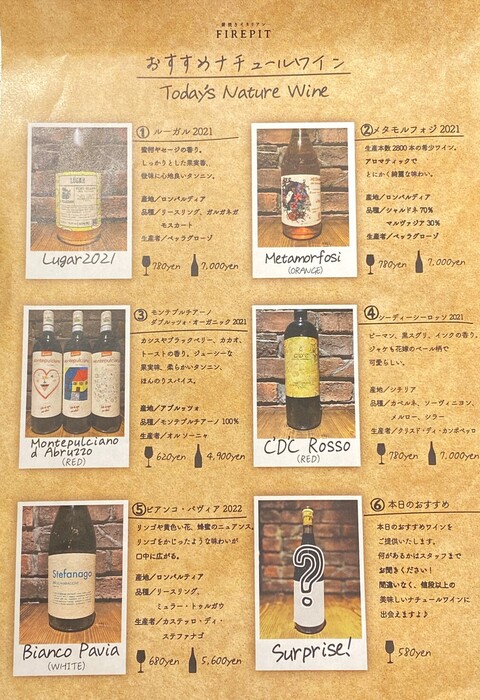 薪焼きイタリアン
FIREPIT
おすすめナチュールワイン
Today's Nature Wine
① ルーガル 2021
蜜柑やセージの香り。
しっかりとした果実香、
後味に心地良いタンニン。
産地／ロンバルディア
品種／リースリング、ガルガネガ
モスカート
生産者／ペッラグローゾ
780yen
7,000yen
Lugar2021
②メタモルフォジ 2021
生産本数 2800 本の希少ワイン。
アロマティックで
とにかく綺麗な味わい。
産地／ロンバルディア
品種／シャルドネ 70%
マルヴァジア 30%
生産者／ペッラグローゾ
780yen
7,000yen
Metamorfosi
(ORANGE)
③ モンテプルチアーノ
ダブルッツォ・オーガニック 2021
カシスやブラックベリー、カカオ、
トーストの香り。ジューシーな
果実味、柔らかいタンニン、
ほんのりスパイス。
産地／アブルッツォ
品種／モンテプルチアーノ 100%
生産者／オルソーニャ
620yen
4,900yen
Montepulciano
d Abruzzo
(RED)
④ シーディーシーロッソ 2021
ピーマン、黒スグリ、インクの香り。
ジャケも花嫁のベール柄で
可愛らしい。
産地／シチリア
品種／カベルネ、ソーヴィニヨン、
メルロー、シラー
生産者／クリスド・ディ・カンポベッロ
780yen
7,000yen
C'DC Rosso
(RED)
⑤ビアンコ・パヴィア 2022
リンゴや黄色い花、蜂蜜のニュアンス。
リンゴをかじったような味わいが
口中に広がる。
産地／ロンバルティア
品種／リースリング、
ミュラー・トゥルガウ
生産者／カステッロ・ディ・
ステファナゴ
680yen
5,600yen
Stefanago
Bianco Pavia
(WHITE)
⑥ 本日のおすすめ
本日のおすすめワインを
ご提供いたします。
何があるかはスタッフまで
お聞きください！
間違いなく、値段以上の
美味しいナチュールワインに
出会えますよ♪
580yen
?
Surprise!